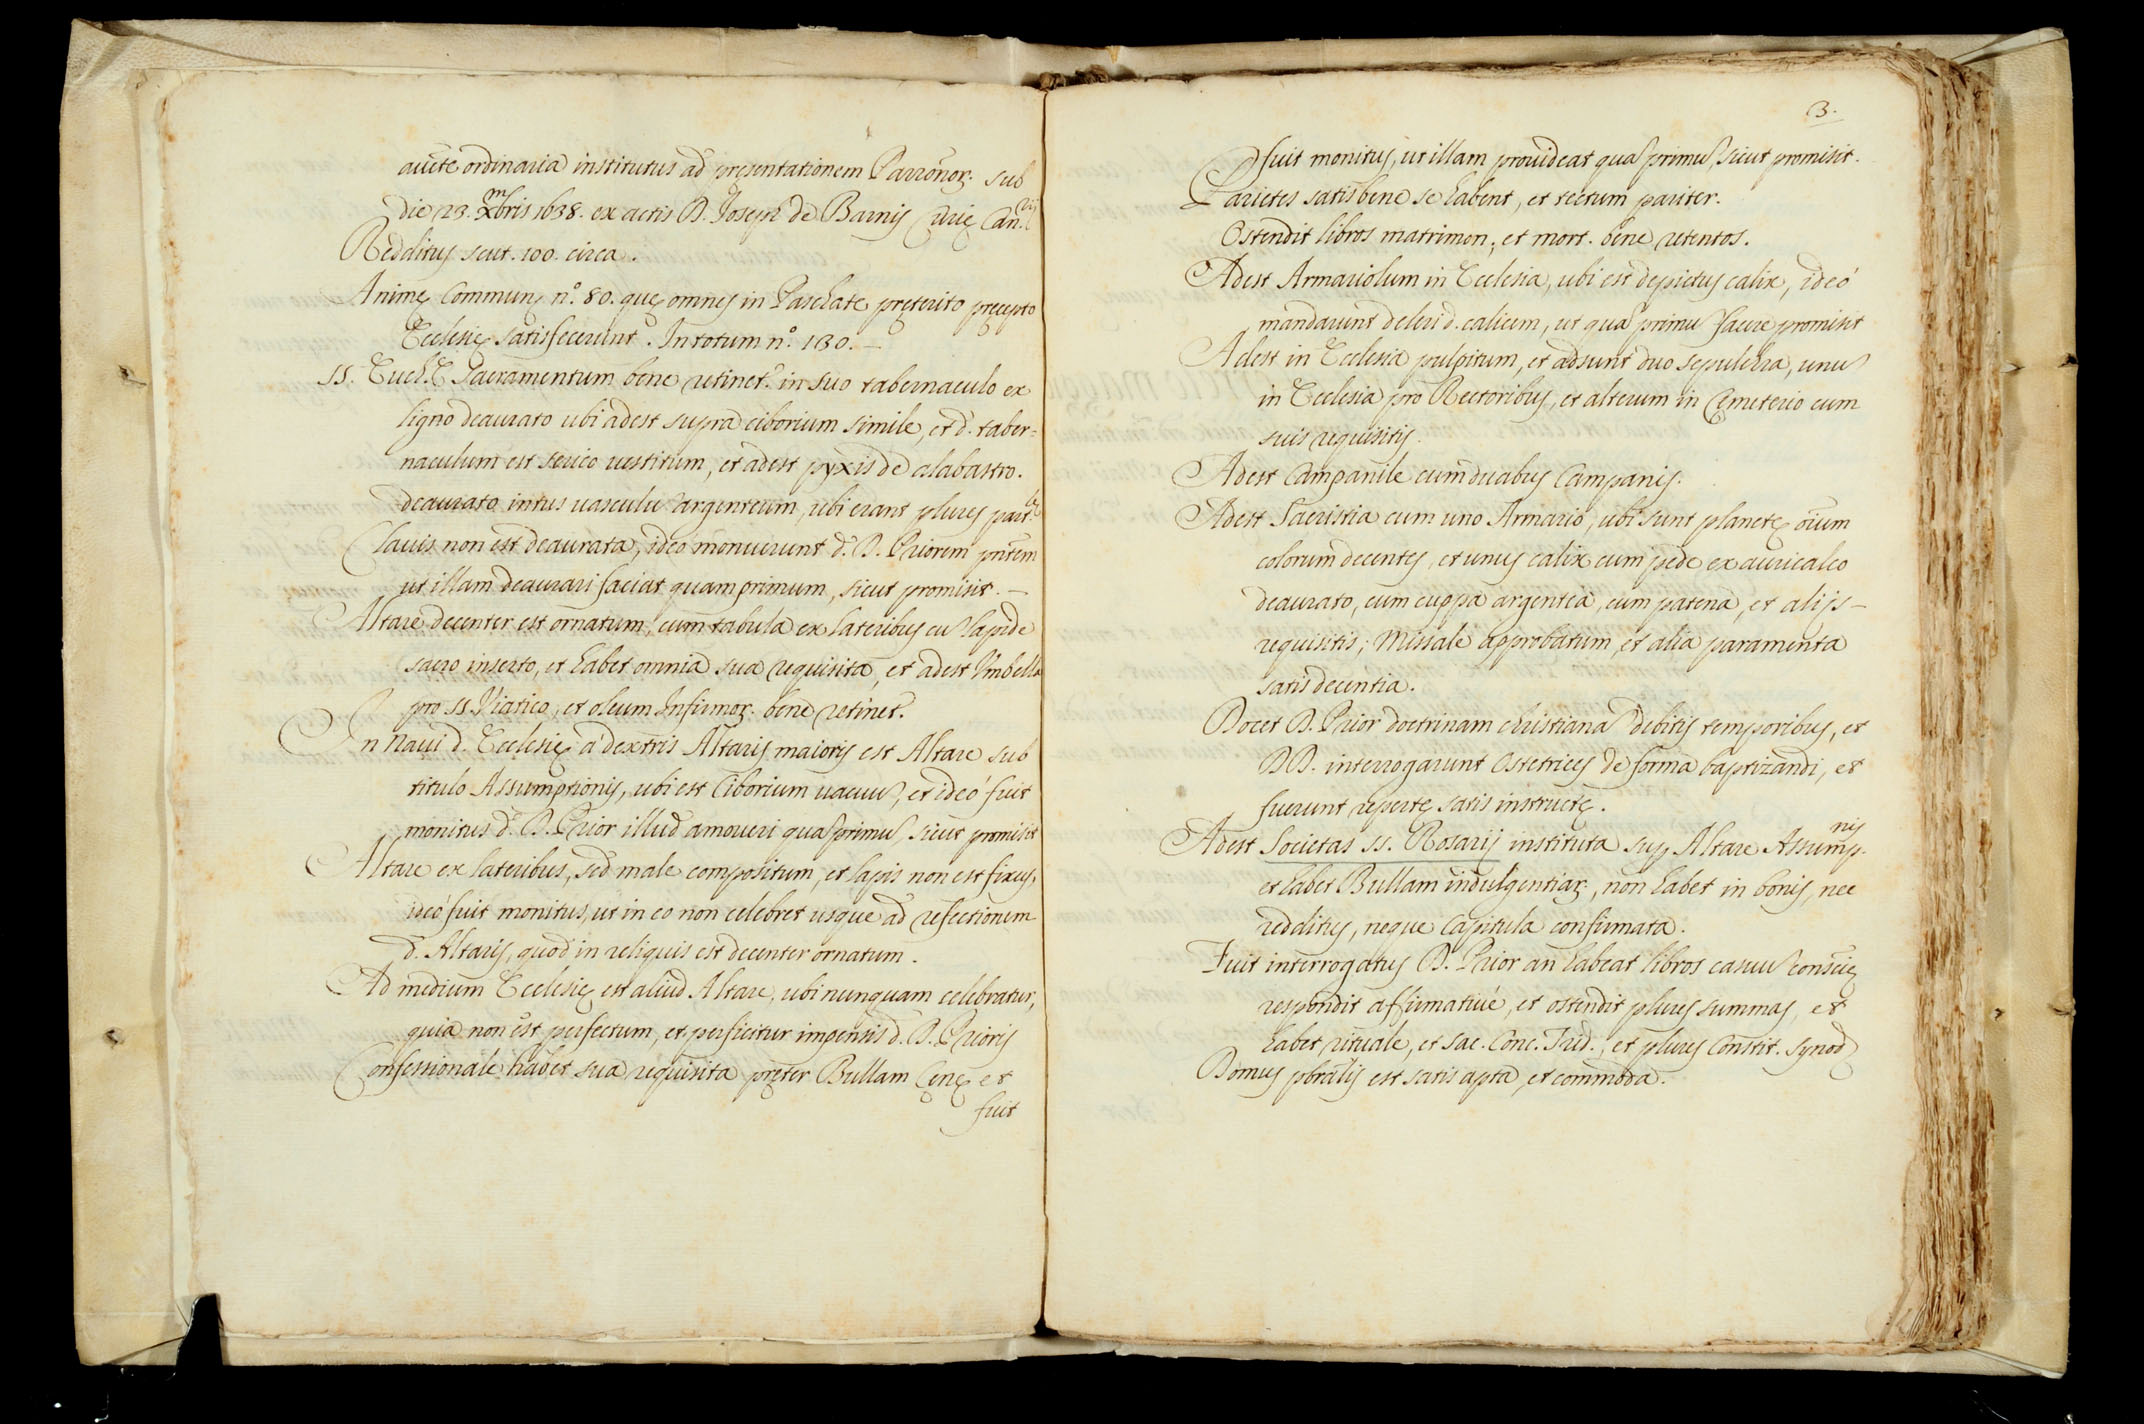 aucte ordinaria institutus ad presentationem Patronor. sub
die 23. Xmbris 1638. ex actis D. Joseph de Barnis Curię Can.rij
Redditus scut. 100. circa.
Animę Commun. nº. 80. quę omnes in Paschate pręterito pręcepto
Ecclesię satisfecerunt. In totum nº. 130. —
SS. Euch.ę Sacramentum bene retinet.r in suo tabernaculo ex
ligno deaurato ubi adest supra ciborium simile, et d. taber=
naculum est serico vestitum, et adest pyxis de alabastro.
deaurato intus vasculũ argenteum, ubi erant plures part.lę
Clavis non est deaurata, ideò monuerunt d. D. Priorem pñtem
ut illam deaurari faciat quam primum, sicut promisit. —
Altare decenter est ornatum, cum tabula ex lateribus cũ lapide
sacro inserto, et habet omnia sua requisita, et adest Umbella
pro SS. Viatico, et oleum Infirmor. bene retinet.r
In Navi d. Ecclesię à dextris Altaris maioris est Altare sub
titulo Assumptionis, ubi est Ciborium vacuũ, et ideò fuit
monitus d. D. Prior illud amoveri quã primũ, sicut promisit
Altare ex lateribus, sed male compositum, et lapis non est fixus,
ideò fuit monitus, ut in eo non celebret usque ad refectionem
d. Altaris, quod in reliquis est decenter ornatum.
Ad medium Ecclesię est aliud Altare, ubi nunquam celebratur,
quia non est perfectum, et perficitur impensis d. D. Prioris
Confessionale habet sua requisita pręter Bullam Cęnę et
fuit
3.
fuit monitus, ut illam provideat quã primũ, sicut promisit.
Parietes satis bene se habent, et tectum pariter.
Ostendit libros matrimon., et mort. bene retentos.
Adest Armariolum in Ecclesia, ubi est depictus calix, ideò
mandarunt deleri d. calicem, ut quã primũ facere promisit
Adest in Ecclesia pulpitum, et adsunt duo sepulchra, unũ
in Ecclesia pro Rectoribus, et alterum in Cęmeterio cum
suis requisitis.
Adest Campanile cum duabus Campanis.
Adest Sacristia cum uno Armario, ubi sunt planetę oĩum
colorum decentes, et unus calix cum pede ex auricalco
deaurato, cum cuppa argentea, cum patena, et alijs —
requisitis; Missale approbatum, et alia paramenta
satis decentia.
Docet D. Prior doctrinam christianã debitis temporibus, et
DD. interrogarunt Ostetrices de forma baptizandi, et
fuerunt repertę satis instructę.
Adest Societas SS. Rosarij instituta sup Altare Assump.nis
et habet Bullam indulgentiar., non habet in bonis, nec
redditus, neque Capitula confirmata.
Fuit interrogatus D. Prior an habeat libros casuũ consc̃ię
respondit affirmativè, et ostendit plures summas, et
habet rituale, et Sac. Conc. Trid., et plures Constit. Synod.
Domus pħralis est satis apta, et commoda.